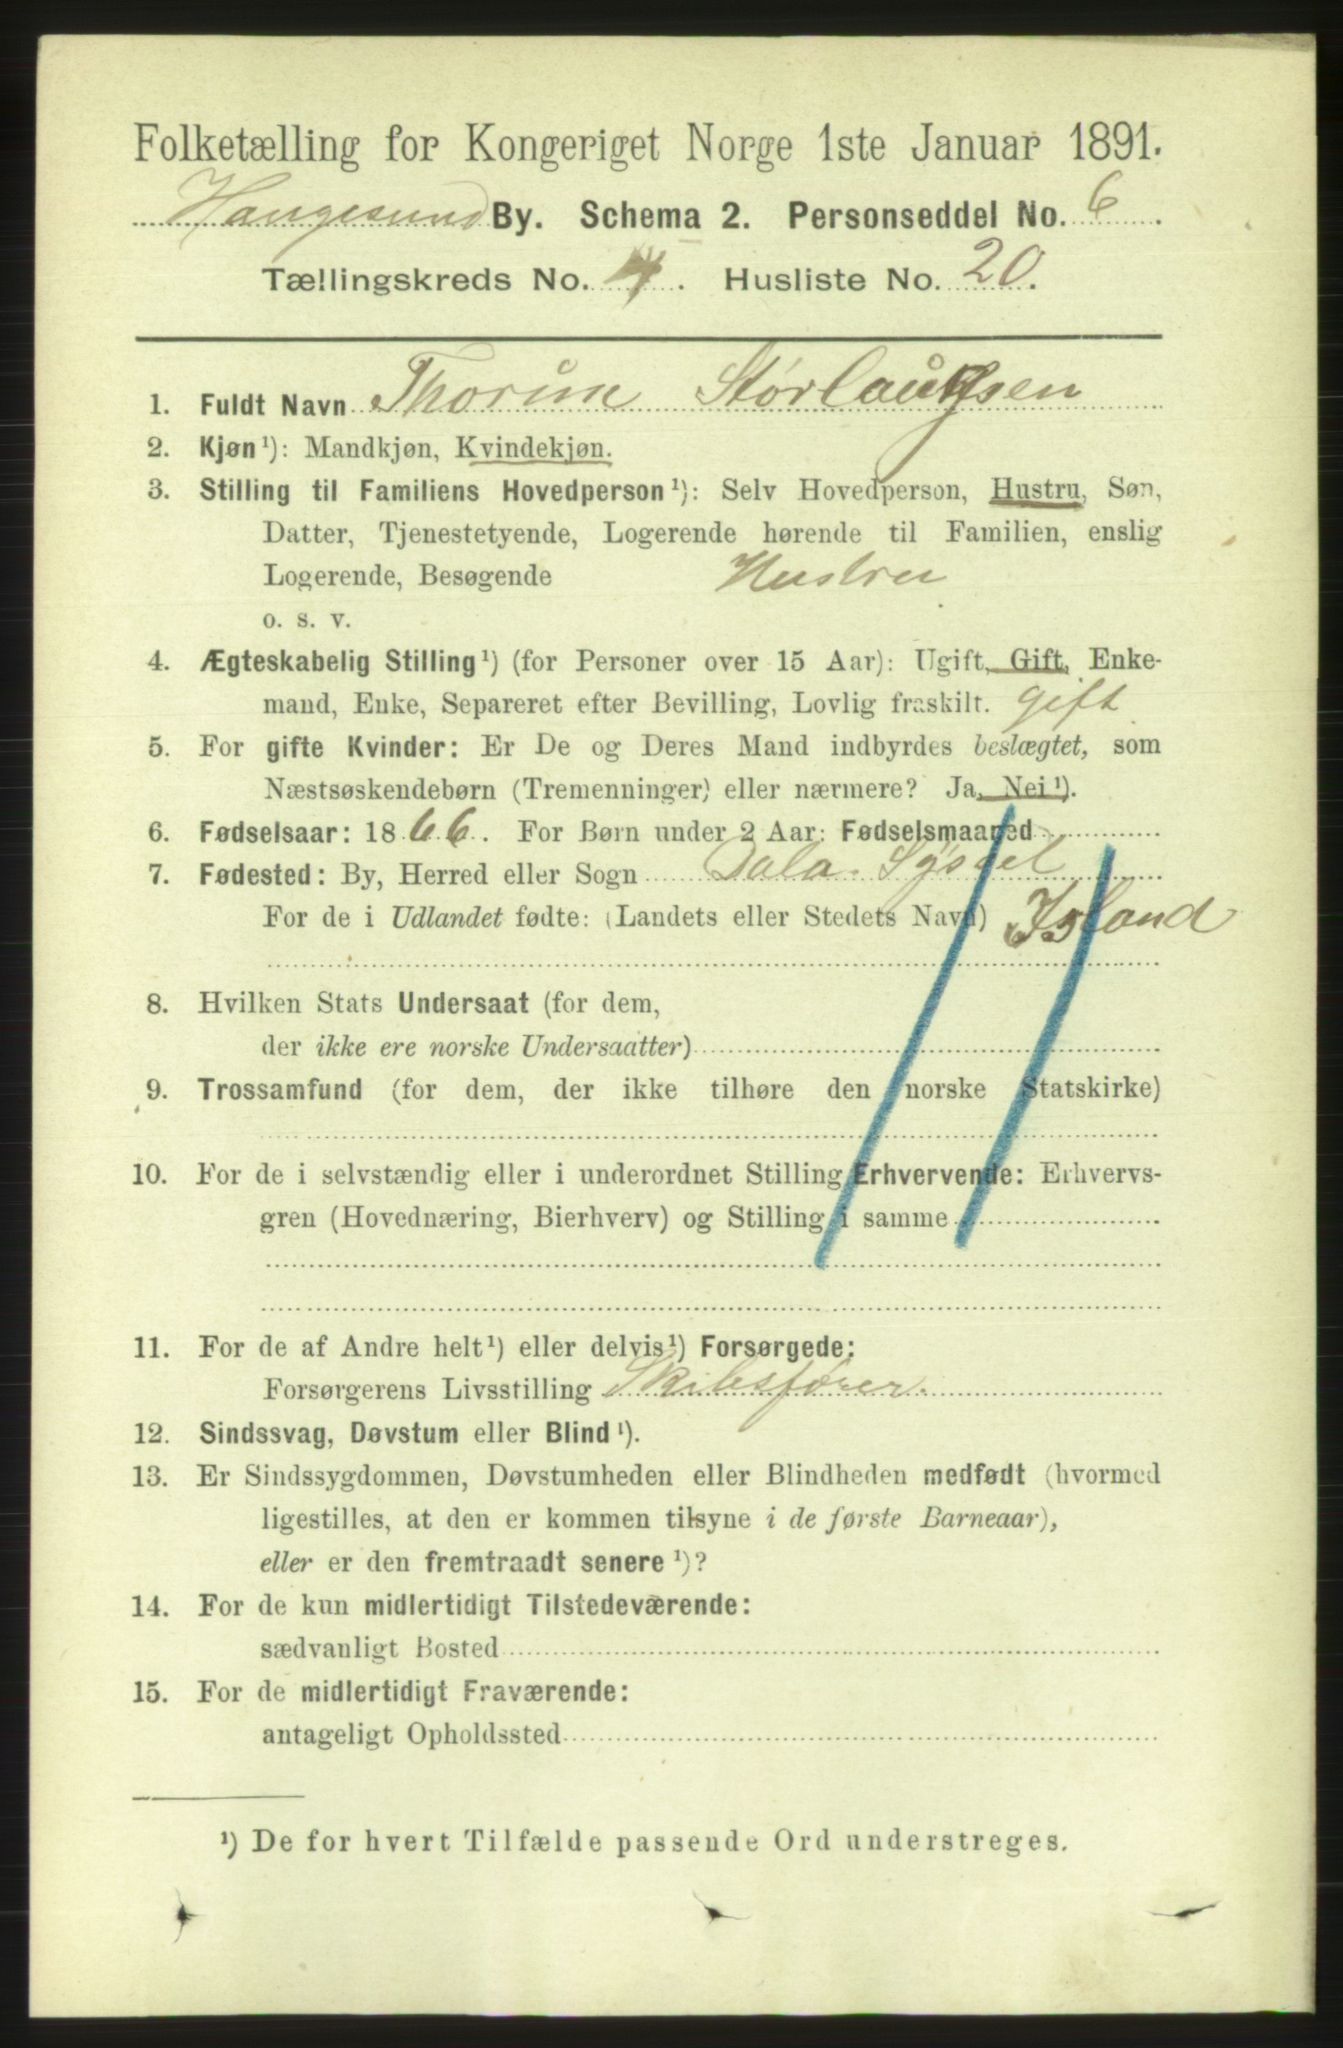 Folketælling for Kongeriget Norge 1ste Januar 1891.
Haugesund By. Schema 2. Personseddel No. 6.
Tællingskreds No. 4. Husliste No. 20.
1. Fuldt Navn Thorun
2. Kjøn ¹): Mandkjøn, Kvindekjøn.
3. Stilling til Familiens Hovedperson ¹): Selv Hovedperson, Hustru, Søn,
Datter, Tjenestetyende, Logerende hørende til Familien, enslig
Logerende, Besøgende Hustru
o. s. v.
4. Ægteskabelig Stilling ¹) (for Personer over 15 Aar): Ugift, Gift, Enke-
mand, Enke, Separeret efter Bevilling, Lovlig fraskilt. gift
5. For gifte Kvinder: Er De og Deres Mand indbyrdes beslægtet, som
Næstsøskendebørn (Tremenninger) eller nærmere? Ja, Nei ¹).
6. Fødselsaar: 1866. For Børn under 2 Aar: Fødselsmaaned
7. Fødested: By, Herred eller Sogn Dala. Syssel
For de i Udlandet fødte: (Landets eller Stedets Navn) Island
8. Hvilken Stats Undersaat (for dem,
der ikke ere norske Undersaatter)
9. Trossamfund (for dem, der ikke tilhøre den norske Statskirke)
10. For de i selvstændig eller i underordnet Stilling Erhvervende: Erhvervs-
gren (Hovednæring, Bierhverv) og Stilling i samme
11. For de af Andre helt ¹) eller delvis ¹) Forsørgede:
Forsørgerens Livsstilling Skibsfører.
12. Sindssvag, Døvstum eller Blind ¹).
13. Er Sindssygdommen, Døvstumheden eller Blindheden medfødt (hvormed
ligestilles, at den er kommen tilsyne i de første Barneaar),
eller er den fremtraadt senere ¹)?
14. For de kun midlertidigt Tilstedeværende:
sædvanligt Bosted
15. For de midlertidigt Fraværende:
antageligt Opholdssted
¹) De for hvert Tilfælde passende Ord understreges.